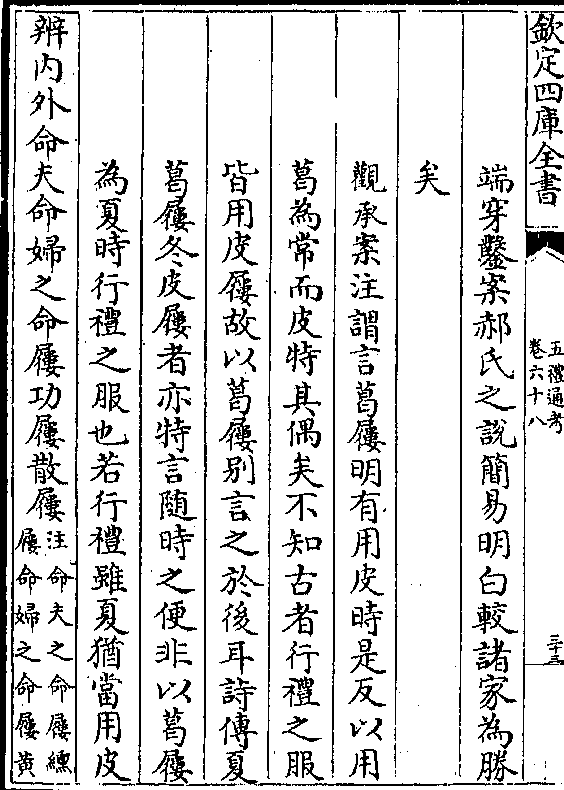 欽定四庫全書
五禮通考
卷六十八
三十三
端穿鑿案郝氏之說簡易明白較諸家為勝
矣
觀承案注謂言葛屨明有用皮時是反以用
葛為常而皮特其偶矣不知古者行禮之服
皆用皮屨故以葛屨别言之於後耳詩傳夏
葛屨冬皮屨者亦特言随時之便非以葛屨
為夏時行禮之服也若行禮雖夏猶當用皮
辨内外命夫命婦之命屨功屨散屨
注命夫之命屨纁
屨命婦之命屨黄